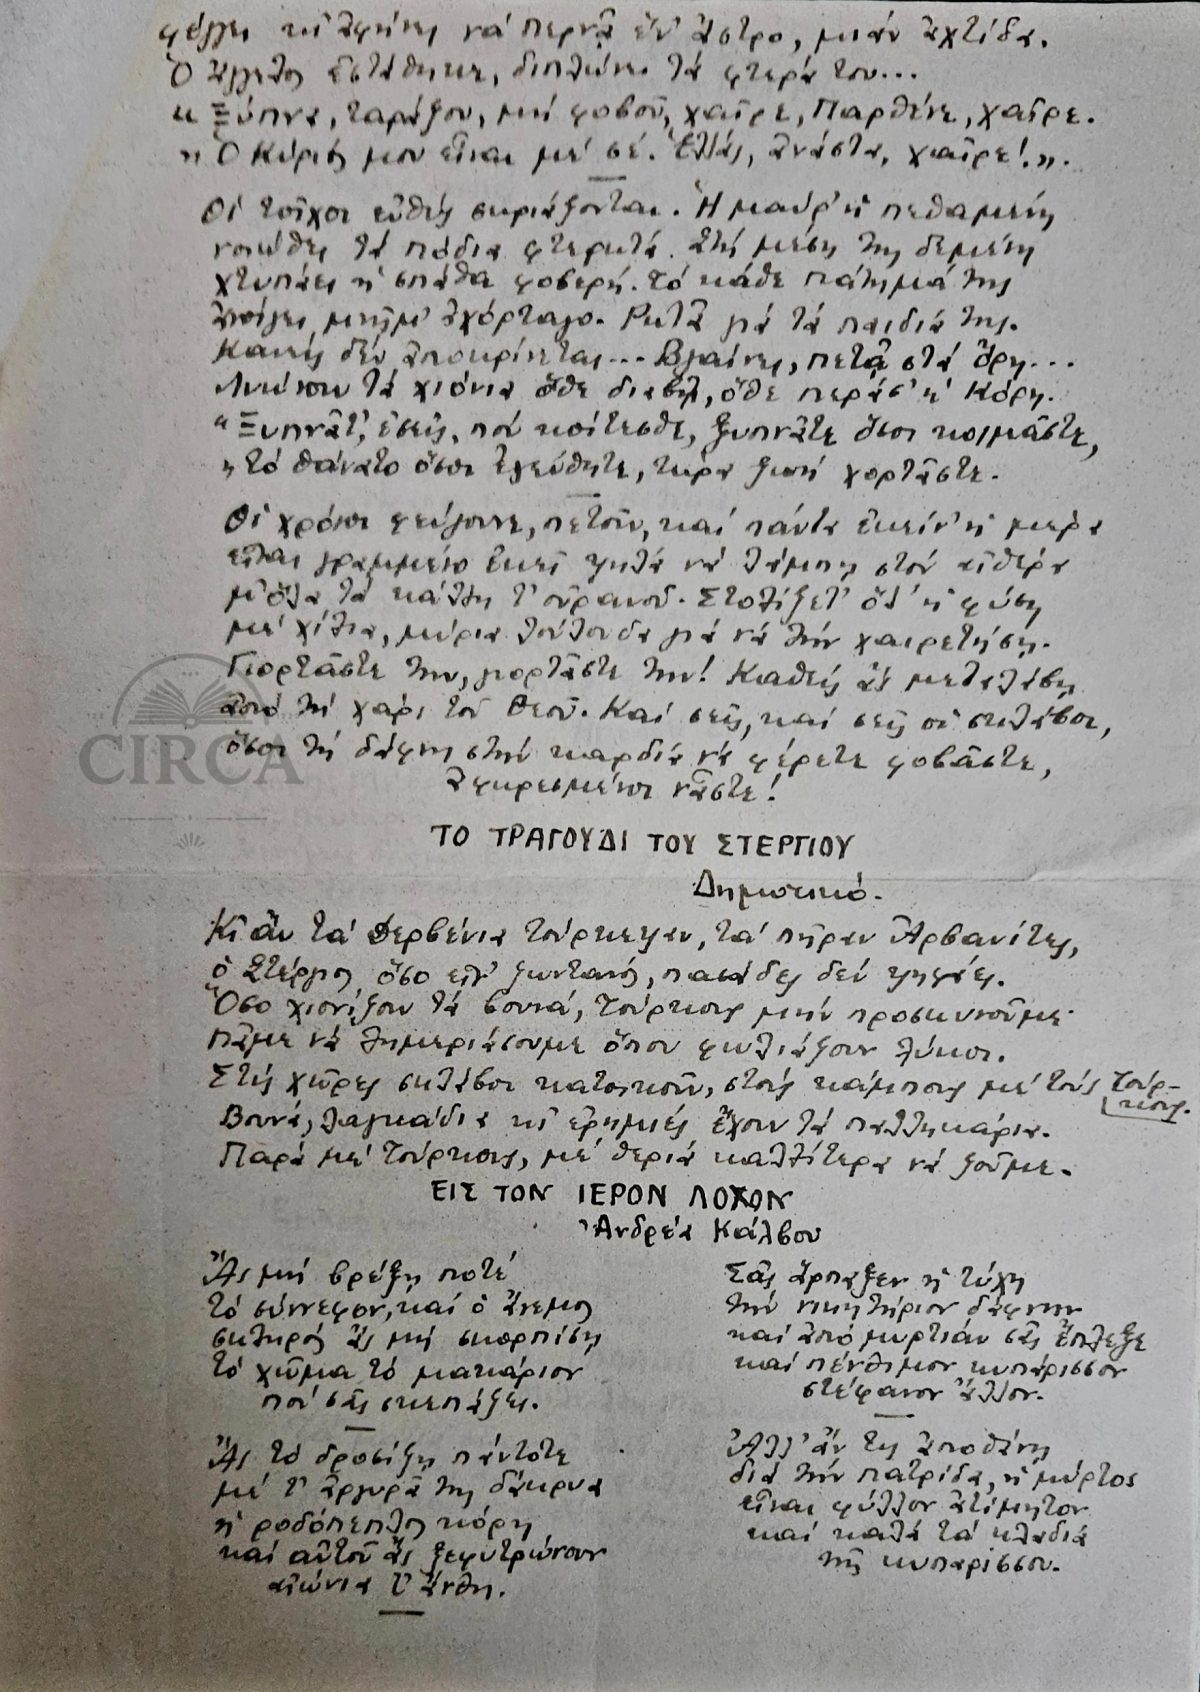 φέγγει κι' ἀφήνει νά περνᾷ ἕν' ἄστρο, μιάν ἀχτίδα.
Ὁ ἄγγελος ἐστάθηκε, διπλώνει τά φτερά του...
« Ξύπνα, ταράξου, μή φοβοῦ, χαῖρε, Παρθένε, χαῖρε.
» Ὁ Κύριός μου εἶναι μέ σέ. Ἑλλάς, ἀνάστα, χαῖρε!».
Οἱ τοῖχοι εὐθύς σωριάζονται. Ἡ μαύρ' ἡ πεθαμένη
νοιώθει τά πόδια φτερωτά. Στή μέση της δεμένη
χτυπάει ἡ σπάθα φοβερή. Τό κάθε πάτημά της
ἀνοίγει μνῆμ' ἀχόρταγο. Ρωτᾷ γιά τά παιδιά της.
Κανείς δέν ἀποκρίνεται... Βγαίνει, πετᾷ στά ὄρη...
Λυώνουν τά χιόνια ὅθε διαβῇ, ὅθε περάσ' ἡ Κόρη.
"Ξυπνᾶτ', ἐσεῖς, πού κοίτεσθε, ξυπνᾶτε ὅσοι κοιμᾶστε,
» τό θάνατο ὅσοι ἐγεύθητε, τώρα ζωή χορτᾶστε.
Οἱ χρόνοι φεύγουνε, πετοῦν, καί πάντα ἐκείν' ἡ μέρα
εἶναι γραμμένο ἐκεῖ ψηλά νά λάμπῃ στόν αἰθέρα
μ' ὅλα τά κάλλη τ' οὐρανοῦ. Στολίζετ' ὅλ' ἡ φύση
μέ χίλια, μύρια λούλουδα γιά νά τήν χαιρετήσῃ.
Γιορτᾶστε την, γιορτᾶστε την! Καθείς ἄς μεταλάβῃ
ἀπό τή χάρι τοῦ Θεοῦ. Καί σεῖς, καί σεῖς οἱ σκλάβοι,
ὅσοι τή δάφνη στήν καρδιά νά φέρετε φοβᾶστε,
ἀφωρεσμένοι νἆστε!
ΤΟ ΤΡΑΓΟΥΔΙ ΤΟΥ ΣΤΕΡΓΙΟΥ
Δημοτικό.
Κι ἄν τά Δερβένια τούρκεψαν, τά πῆραν Ἀρβανίτες,
ὁ Στέργιος ὅσο εἶν' ζωντανός, πασάδες δέν ψηφάει.
Ὅσο χιονίζουν τά βουνά, Τούρκους μήν προσκυνοῦμε.
πᾶμε νά λημεριάσουμε ὅπου φωλιάζουν λύκοι.
Στίς χῶρες σκλάβοι κατοικοῦν, στούς κάμπους μέ τούς Τούρ-
κους.
Βουνά, λαγκάδια κι' ἐρημιές ἔχουν τά παλληκάρια.
Παρά μέ Τούρκους, μέ θεριά καλλίτερα νά ζοῦμε.
ΕΙΣ ΤΟΝ ΙΕΡΟΝ ΛΟΧΟΝ
Ἀνδρέα Κάλβου
Ἄς μή βρέξῃ ποτέ
τό σύννεφον, καί ὁ ἄνεμος
σκληρός ἄς μή σκορπίσῃ
τό χῶμα τό μακάριον
πού σᾶς σκεπάζει.
Ἄς τό δροσίζῃ πάντοτε
μέ τ' ἀργυρᾶ της δάκρυα
ἡ ροδόπεπλος κόρη
καί αὐτοῦ ἄς ξεφυτρώνουν
αἰώνια τ' ἄνθη.
Σᾶς ἅρπαξεν ἡ τύχη
τήν νικητήριον δάφνην
καί ἀπό μυρτιάν σᾶς ἔπλεξε
καί πένθιμον κυπάρισσον
στέφανον ἄλλον.
Ἀλλ' ἄν τις ἀποθάνῃ
διά τήν πατρίδα, ἡ μύρτος
εἶναι φύλλον ἀτίμητον
καί καλά τά κλαδιά
τῆς κυπαρίσσου.
CIRCA